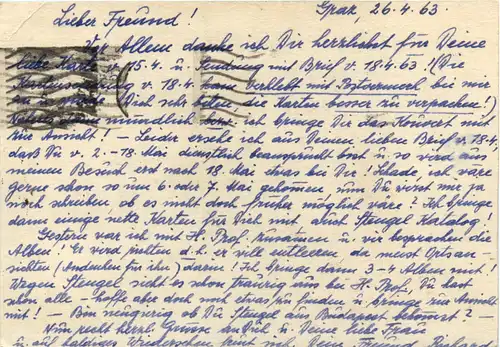 Graz, 26.4.63.
Lieber Freund!
Vor Allem danke ich Dir herzlichst für Deine
liebe Karte v. 15.4. u. Sendung mit Brief v. 18.4.63! (Die
v. 18.4. kam verklebt mit Postvermerk bei mir
an u. Dich sehr bitten, die Karten besser zu verpacken!)
mündlich bzw. ich bringe Dir das Kouvert mit
zur Ansicht! – Leider ersehe ich aus Deinem lieben Brief v. 18.4.
daß Du v. 2. – 18. Mai dienstlich beansprucht bist u. so wird aus
meinem Besuch erst nach 18. Mai etwas bei Dir! Schade, ich wäre
gerne schon so um 6. oder 7. Mai gekommen, nun Du wirst mir ja
noch schreiben ob es nicht doch früher möglich wäre? Ich bringe
dann einige nette Karten für Dich mit auch Stengel Katalog!
Gestern war ich mit H. Prof. zusammen u. wir besprachen die
Alben! Er wird d.h. er will entleeren da meist Ortsan-
sichten (Andenken für ihn) darin! Ich bringe dann 3–4 Alben mit!
Wegen Stengel sieht es schon traurig aus bei H. Prof. Du hast
schon alle – hoffe aber doch noch etwas zu finden u. bringe zur Ansicht
mit! – Bin neugierig ob Du Stengel aus Budapest bekommst? –
Nun recht herzl. Grüsse an Dich u. Deine liebe Frau
u. auf baldiges Wiedersehen freut sich Dein Freund Roland